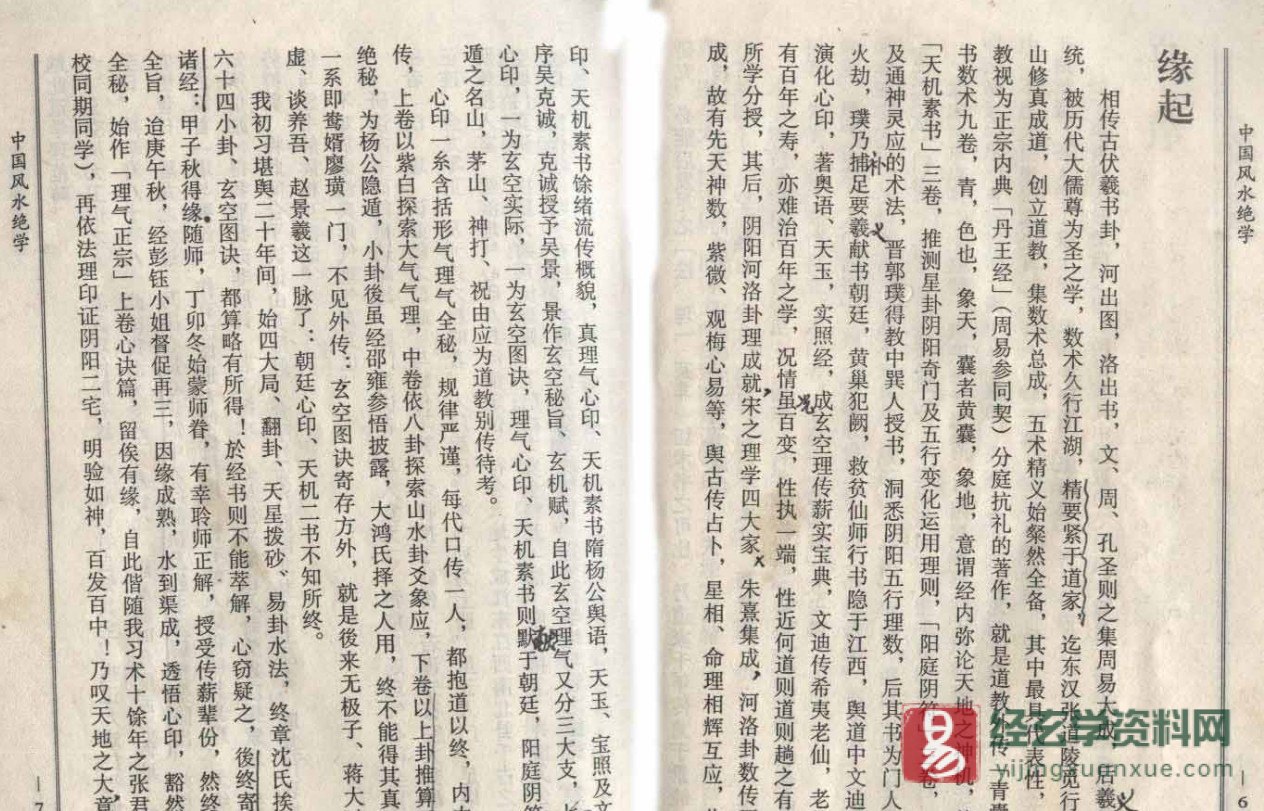 中国风水绝学
—6
缘起
相传古伏羲书卦，河出图，洛出书，文、周、孔圣则之集周易大成，后羲
统，被历代大儒尊为圣之学，数术久行江湖，精要紧于道家，迄东汉张道陵觅行
山修真成道，创立道教，集数术总成，五术精义始粲然全备，其中最具代表性，
教视为正宗内典「丹王经」（周易参同契）分庭抗礼的著作，就是道教外传「青囊
书数术九卷，青，色也，象天，囊者黄囊，象地，意谓经内弥论天地之神机，
「天机素书」三卷，推测星卦阴阳奇门及五行变化运用理则，「阳庭阴 卷，
及通神灵应的术法，晋郭璞得教中巽人授书，洞悉阴阳五行理数，后其书为门人
火劫，璞乃捕足要羲献书朝廷，黄巢犯阙，救贫仙师行书隐于江西，舆道中文迪
补
义
演化心印，著奥语、天玉，实照经，成玄空理传薪实宝典，文迪传希夷老仙，老
有百年之寿，亦难治百年之学，况情虽百变，性执一端，性近何道则道则趟之有
况
所学分授，其后，阴阳河洛卦理成就，宋之理学四大家，朱熹集成，河洛卦数传
成，故有先天神数，紫微、观梅心易等，舆古传占卜，星相、命理相辉互应，
印、天机素书馀绪流传概貌，真理气心印、天机素书隋杨公舆语，天玉、宝照及文
序吴克诚，克诚授予吴景，景作玄空秘旨、玄机赋，自此玄空理气又分三大支，
心印，一为玄空实际，一为玄空图诀，理气心印、天机素书则默于朝廷，阳庭阴
遁之名山，茅山、神打、祝由应为道教别传待考。
心印一系含括形气理气全秘，规律严谨，每代口传一人，都抱道以终，内
传，上卷以紫白探索大气气理，中卷依八卦探索山水卦爻象应，下卷以上卦推算
绝秘，为杨公隐遁，小卦後虽经邵雍参悟披露，大鸿氏择之人用，终不能得其真
一系即鸯婿廖璜一门，不见外传：玄空图诀寄存方外，就是後来无极子、蒋大
虚、谈养吾、赵景羲这一脉了：朝廷心印、天机二书不知所终。
我初习堪舆二十年间，始四大局、翻卦、天星拨砂、易卦水法，终章沈氏挨
六十四小卦、玄空图诀，都算略有所得！於经书则不能萃解，心窃疑之，後终寄
诸经：甲子秋得缘随师，丁卯冬始蒙师眷，有幸聆师正解，授受传薪辈份，然终
全旨，迨庚午秋，经彭钰小姐督促再三，因缘成熟，水到渠成，透悟心印，豁然
全秘，始作「理气正宗」上卷心诀篇，留俟有缘，自此偕随我习术十馀年之张君
校同期同学），再依法理印证阴阳二宅，明验如神，百发百中！乃叹天地之大章
中国风水绝学
—7
易
经玄学资料网
yijingxuanxue.com